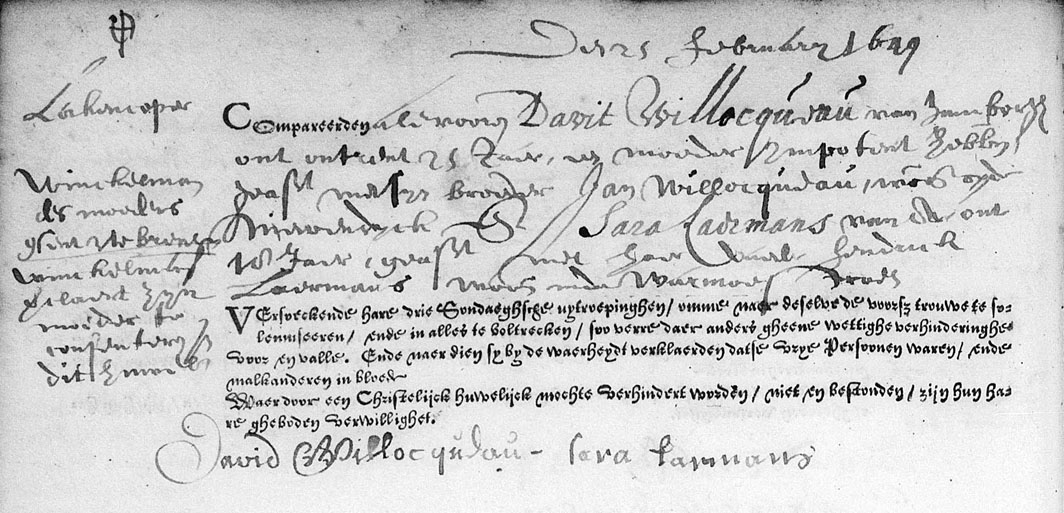 Den 25 February 1649
Lakencoper
Compareerden als vooren Davit Willocqueau van
out ontrent 25 Jaer, en moeder
geast met syn broeder Jan Willocqudau, woont opde
Nieuwendyck & Sara Laermans van A. out
18 Jaer, geast met haer vader Hendrick
Laermans woont inde Warmoes straet
Winckelman
des moeders
Winckelman
moeder te
consenteren
dit huwelick
VErsoeckende hare drie Sondaeghsche uytroepinghen / omme naer deselve de voorsz trouwe te so-
lemniseeren / ende in alles te voltrecken / soo verre daer anders gheene wettighe verhinderinghe
voor en valle. Ende naer dien sy by de waerheydt verklaerden datse vrye Persoonen waren / ende
malkanderen in bloede
Waer door een Christelijck huwelijck mochte verhindert worden / niet en bestonden / zijn hun ha-
re gheboden verwillighet.
David Willocqudau - sara larmans